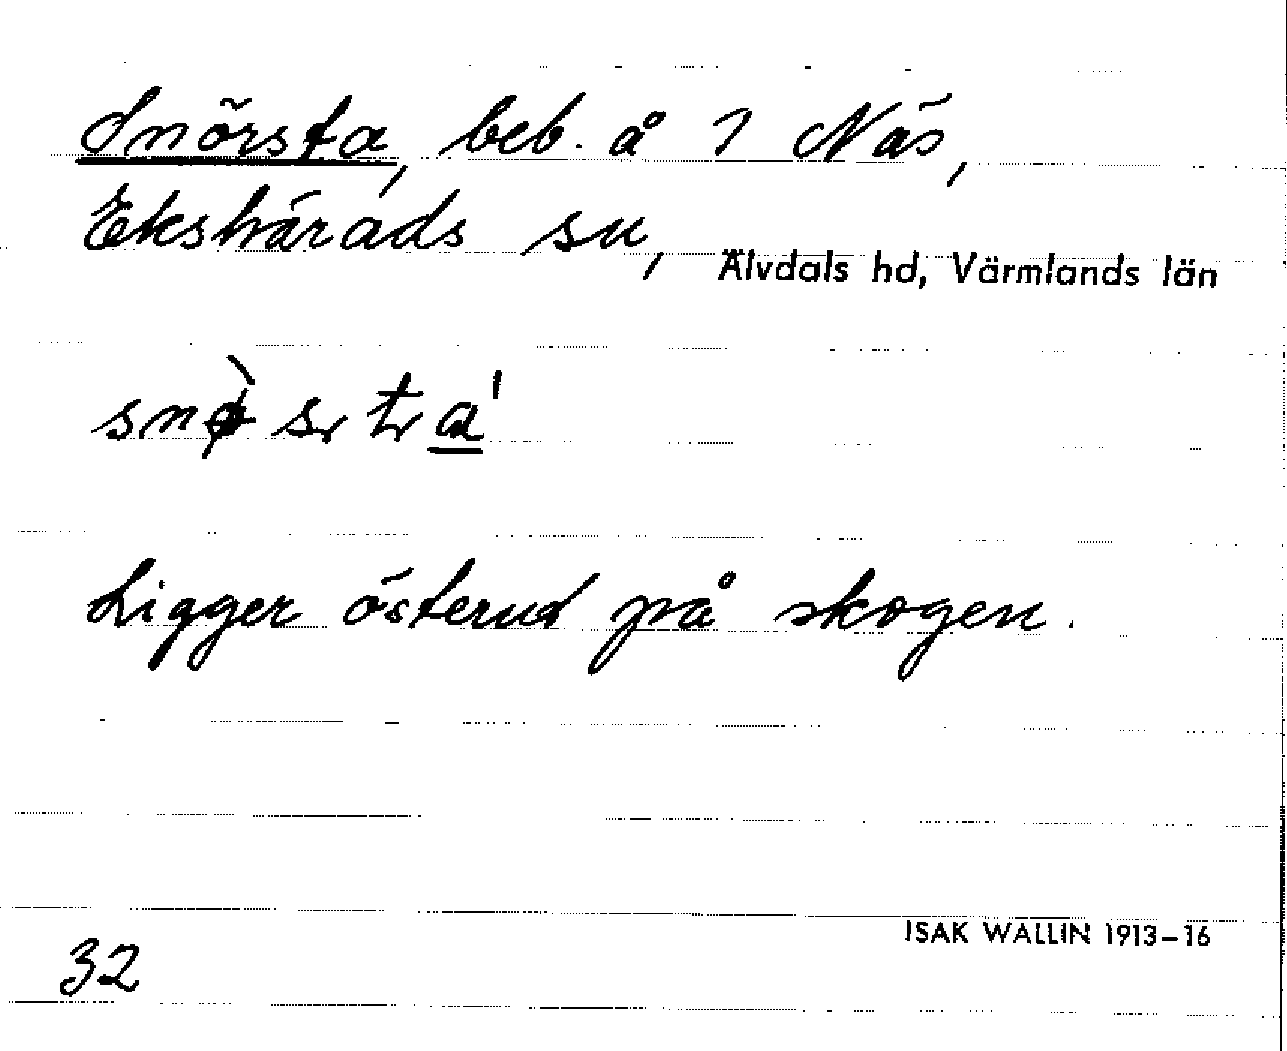 Snörsta, beb. å 1 Näs,
Ekshärads sn,
Älvdals hd, Värmlands län
Ligger österut på skogen.
ISAK WALLIN 1913-16
32